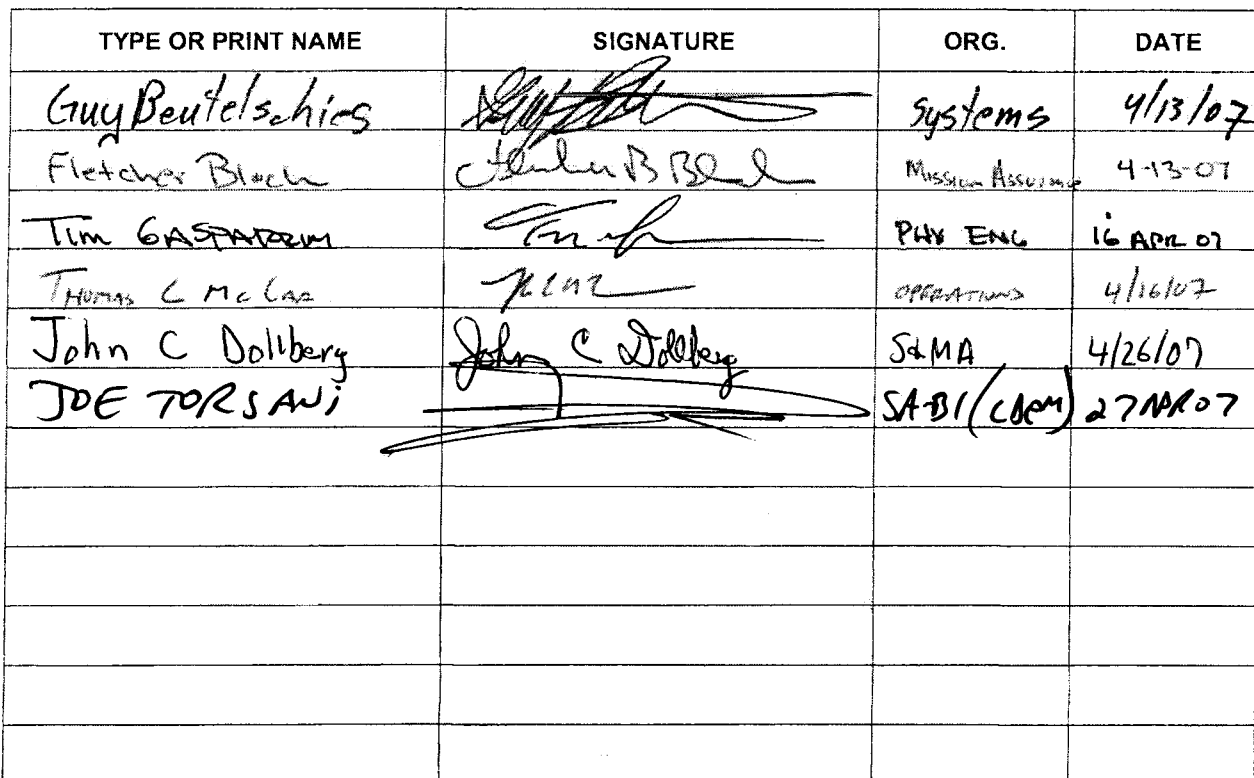 TYPE OR PRINT NAME SIGNATURE ORG. DATE
Guy Beutelschies Systems 4/13/07
Fletcher Block Fletcher B Block Mission Assurance 4-13-07
Tim GASPARRINI PHX ENG 16 APR 07
THOMAS C McCAR OPERATIONS 4/16/07
John C Dollberg John C Dollberg S&MA 4/26/07
JOE TORSANi SA-B1 27APR07